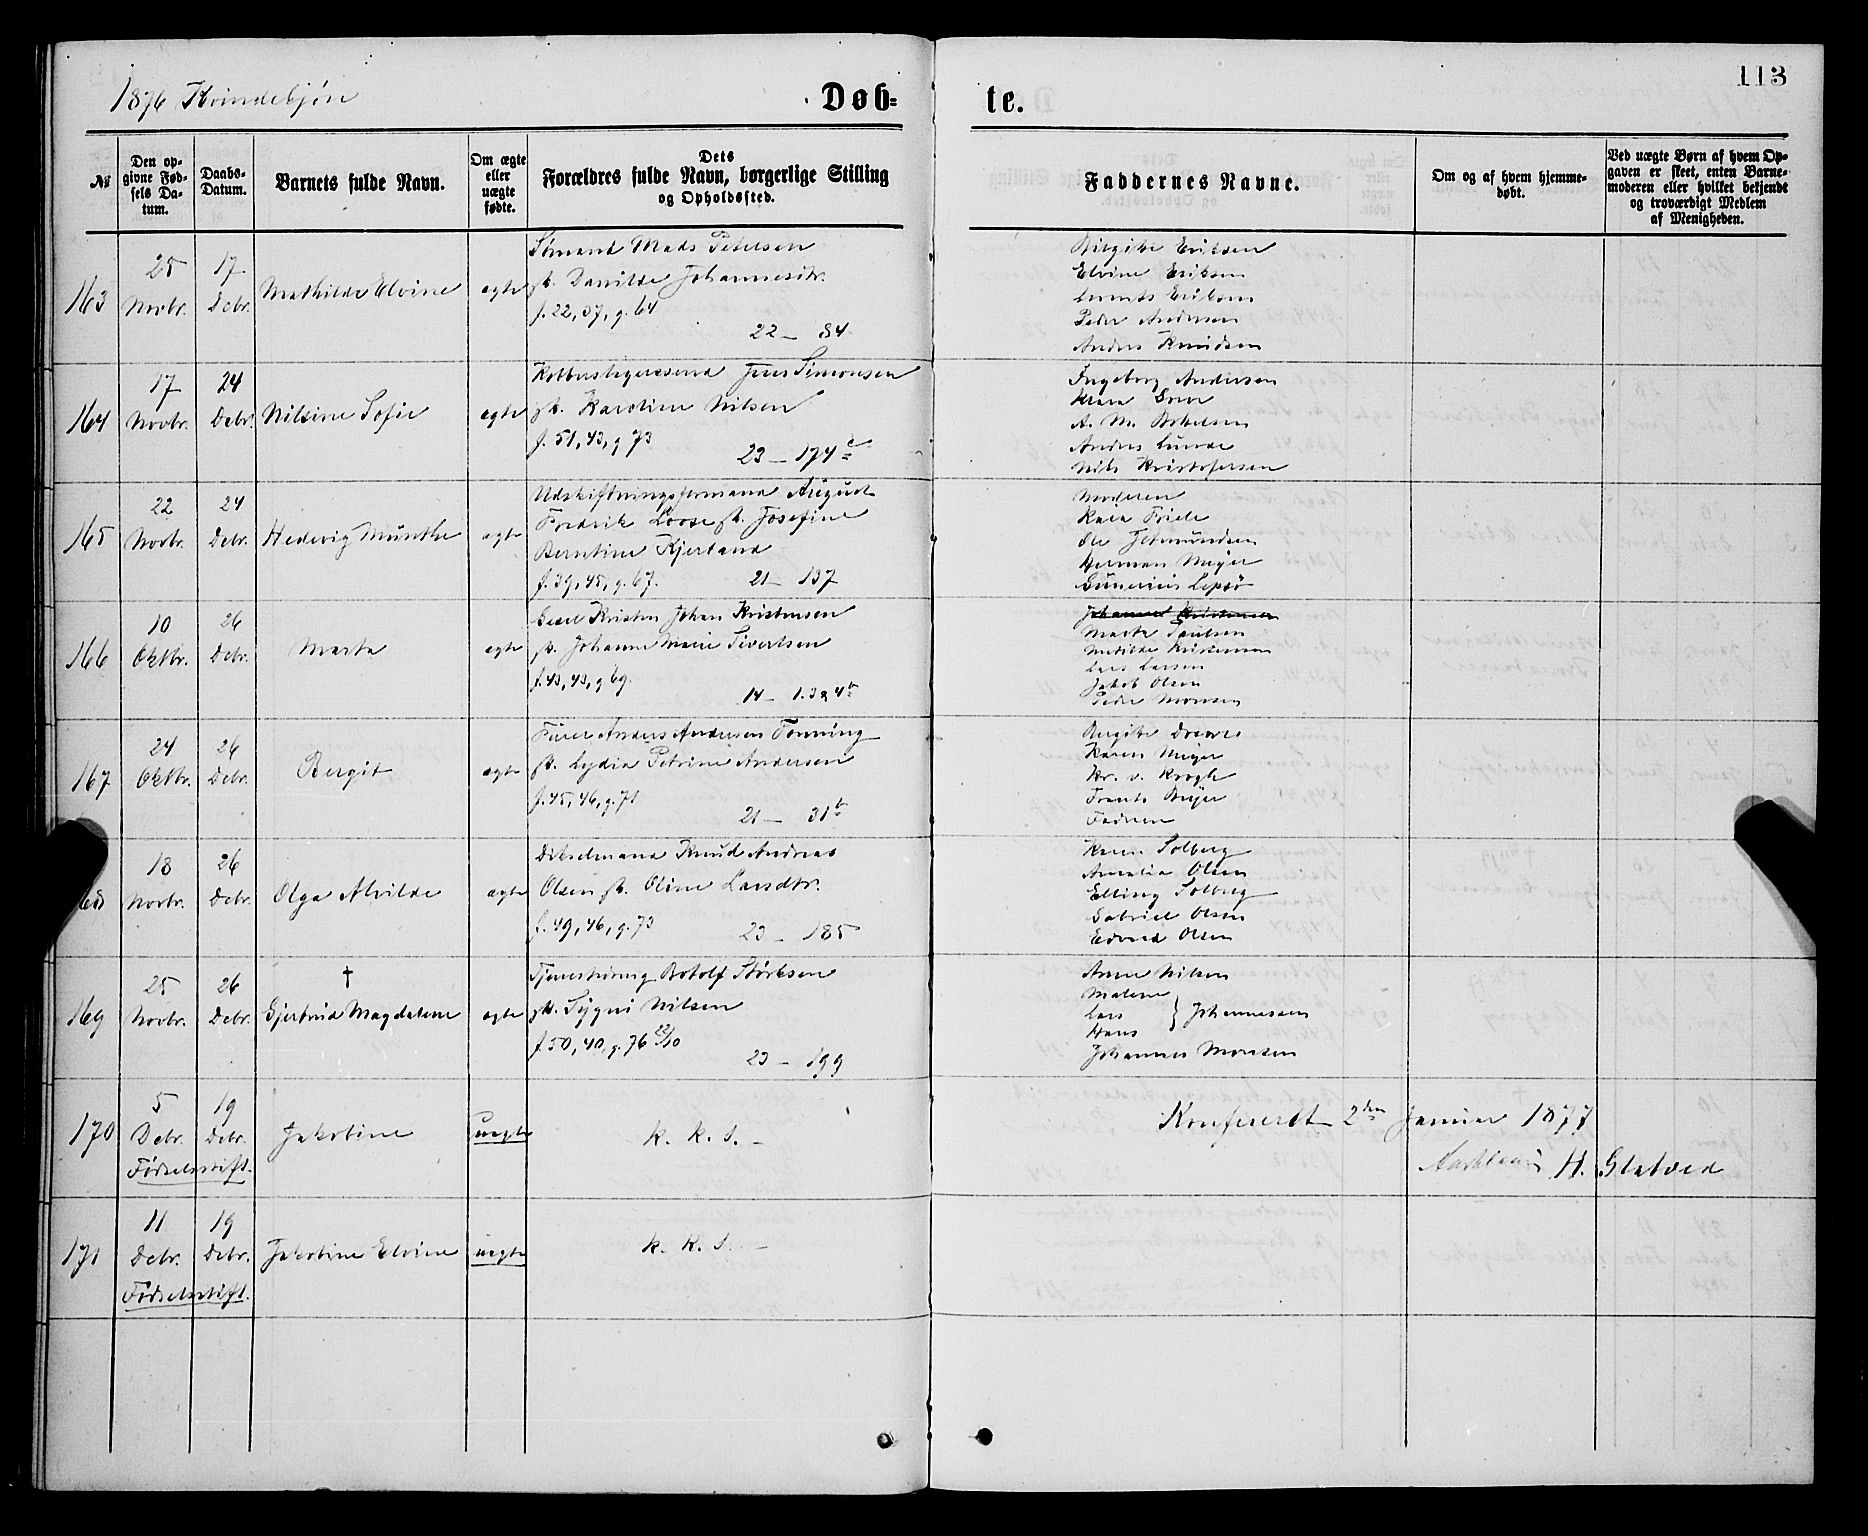 113
1876 Kvindekjøn
Døb=
te.
№
Den op-
givne Fød-
sels Da-
tum.
Daabs-
Datum.
Barnets fulde Navn.
Om ægte
eller
uægte
fødte.
Dets
Forældres fulde Navn, borgerlige Stilling
og Opholdssted.
Faddernes Navne.
Om og af hvem hjemme-
døbt.
Ved uægte Børn af hvem Op-
gaven er skeet, enten Barne-
moderen eller hvilket bekjendt
og troværdigt Medlem
af Menigheden.
163
25
Novbr.
17
Debr.
Mathilde Elvine
ægte
Sømand Mads Petersen
Danilde Johannesdr.
f. 22, 37, g. 64
22 — 84
Birgitte Eriksen
Elvine Eriksen
Eriksen
Peder Andersen
Anders Knudsen
164
17
Novbr.
24
Debr.
Nilsine Sofie
ægte
Jens Simonsen
Karoline Nilsen
f. 51, 43, g 73
23 — 174 c
Ingeborg Andersen
A. M.
Anders Lunde
Nils Kristofersen
165
22
Novbr.
24
Debr.
Hedevig Münthe
ægte
Udskiftningsformand August
Fredrik Loose Josefine
Berntine Kjerland
f. 39, 45, g. 67.
21 — 137
Moderen
Kaia Friele
Ole
Herman Meyer
Gunerius Lepsø
166
10
Oktbr.
26
Debr.
Marta
ægte
Kristen Johan Kristensen
Johanne Marie Sivertsen
f. 43, 43, g 69.
14 — 1. 3 & 4
Marta Paulsen
Matilde Kristensen
Lars Larsen
Jakob Olsen
Peder Monsen
167
24
Oktbr.
26
Debr.
Bergit
ægte
Anders Andersen Fonning
Lydia Petrine Andersen
f. 45, 46, g. 71
21 — 31 b
Birgitte
Karen Meyer
Kr. v. Krogh
Frants Beyer
Faderen
18
Novbr.
26
Debr.
Olga Alvilde
ægte
Knud Andreas
Olsen Oline Larsdtr.
f. 49, 46, g. 73
23 — 185
Karen Solberg
Amalia Olsen
Elling Solberg
Gabriel Olsen
Edvard Olsen
169
25
Novbr.
26
Debr.
†
Gjertrud Magdalene
ægte
Botolf Størksen
Sygni Nilsen
f. 50, 40, g. 76
23 — 199
Anne Nilsen
Malene
Lars } Johannessen
Hans
Johannes Monsen
170
5
Debr.
19
Debr.
Fødselsstift.
Jakobine
uægte
k. k. s. —
Konfereret 2den Januar 1877
H. Gletved
171
11
Debr.
19
Debr.
Fødselsstift.
Jakobine Elvine
uægte
k. k. s. —